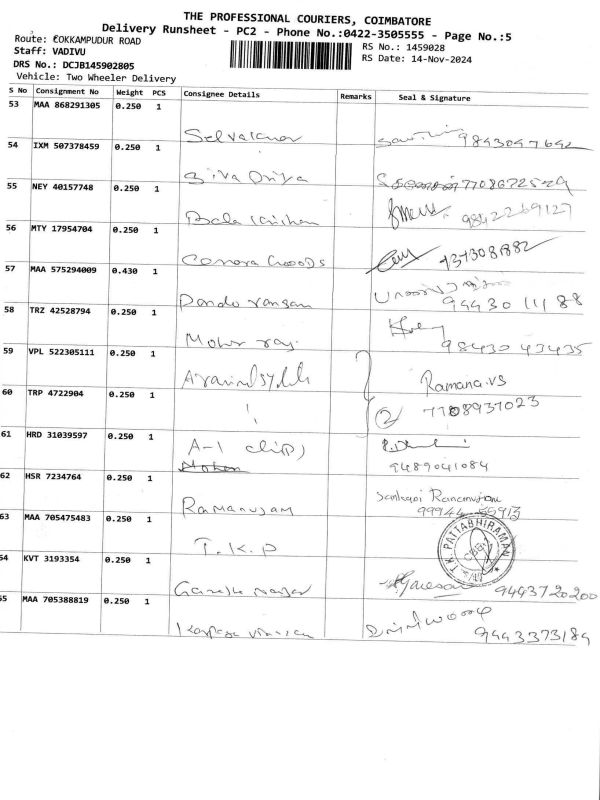 THE PROFESSIONAL COURIERS, COIMBATORE
Delivery Runsheet - PC2 - Phone No.:0422-3505555 - Page No.:5
Route: COKKAMPUDUR ROAD
RS No.: 1459028
Staff: VADIVU
RS Date: 14-Nov-2024
DRS No.: DCJB145902805
Vehicle: Two Wheeler Delivery
S No Consignment No Weight PCS Consignee Details Remarks Seal & Signature
53 MAA 868291305 0.250 1
54 IXM 507378459 0.250 1
Siva Priya
55 NEY 40157748 0.250 1
Bala Krishan 9842269127
56 MTY 17954704 0.250 1
Conora Goods 9373081882
57 MAA 575294009 0.430 1
Pando rangan 94430 111 88
58 TRZ 42528794 0.250 1
Mohan raj 98430 43435
59 VPL 522305111 0.250 1
Ramana.vs
60 TRP 4722904 0.250 1
2 7708937023
61 HRD 31039597 0.250 1
A-1 chips
Mohan 9489041084
62 HSR 7234764 0.250 1
Ramanujam 99944 55913
63 MAA 705475483 0.250 1
T.K.P T.K. PATTABHIRAMAN CBE-1
64 KVT 3193354 0.250 1
Ganesh nagar 9443720200
65 MAA 705388819 0.250 1
9443373184